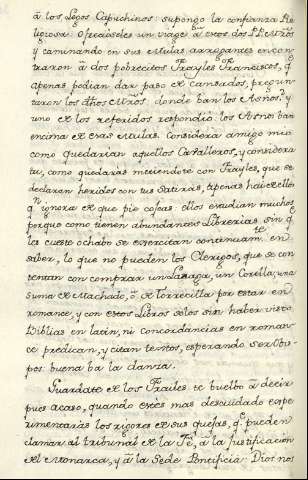 à los Legos Capuchinos: supongo la confianza Re
ligiosa: ofreciòseles un viage à estos dos P.P. Mtros
y caminando en sus Mulas arrogantes encon
traron à dos pobrecitos Frayles Franciscos, q̃
apenas podian dar paso de cansados, pregun
taron los dhos Mtros. donde ban los Asnos? y
uno de los referidos respondiò los Asnos ban
encima de esas Mulas. Considera amigo mio
como quedarian aquellos Cavalleros, y considera
tu, como quedaràs metiendote con Frayles, que se
declaran heridos con tus Satiras, apenas hai de ellos
qn ignora de que pie cojeas. ellos estudian mucho,
porque como tienen abundantes Librerias sin q̃
les cueste ochabo se exercitan continuamte. en
saber, lo que no pueden los Clerigos, que se con
tentan con comprar un Larraga, un Corella; una
Suma de Machado, ò de Torrecilla por estar en
romance, y con estos Libros solos sin haber visto
Biblias en latin, ni concordancias en roman-
ce predican, y citan textos, esperando ser Obis-
pos: buena ba la danza.
Guardate de los Frailes te buelbo à decir
pues acaso, quando estès mas descuidado expe
rimentaràs los rigores de sus quejas, q̃ pueden
clamar al tribunal de la Fè, à la justificacion
del Monarca, y à la Sede Pontificia. Dios nos